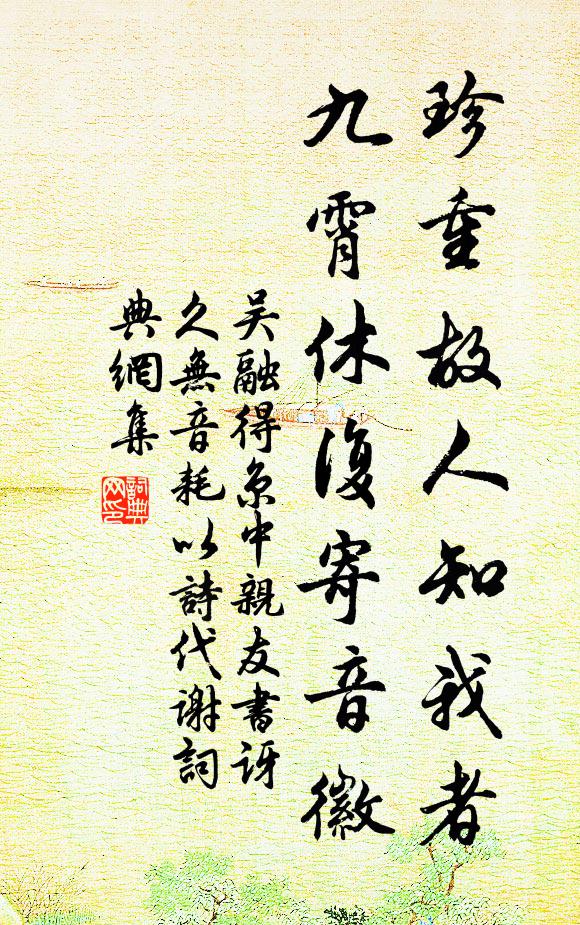 珍重故人知我者
九霄休復寄音徽
吴融得京中親友書訝
久無音耗以詩代謝詞
典網集
詞典网印